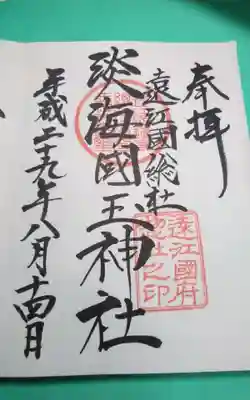 奉拝
遠江國総社
淡海國玉神社
平成二十九年八月十四日
遠江國府
総社之印